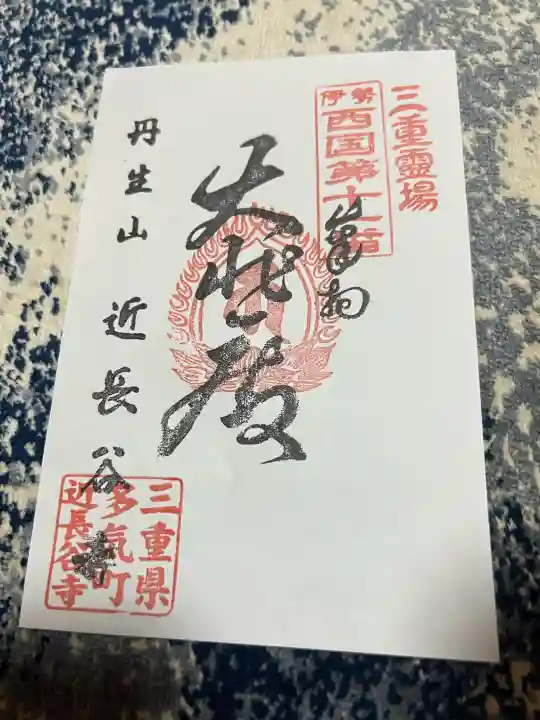 三重霊場
伊勢
西国第十一番
奉拝
大悲殿
丹生山 近長谷寺
三重県
多気町
近長谷寺